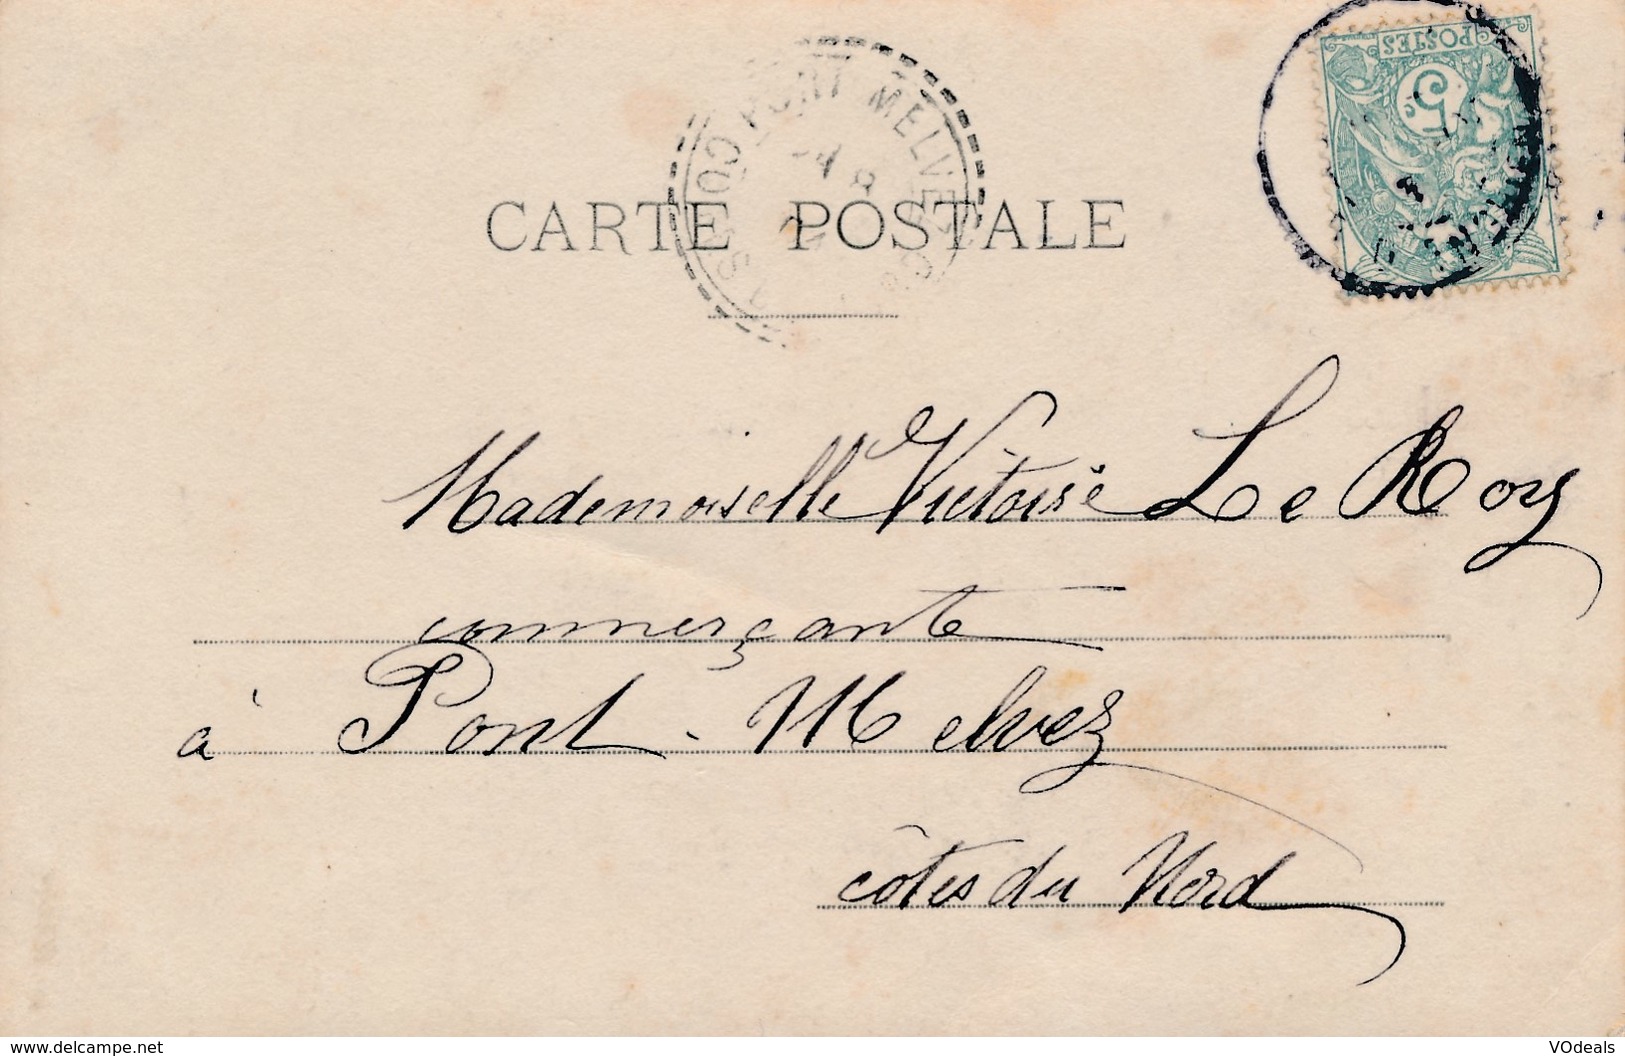 POSTES
5
PONT MELVEZ
CARTE POSTALE
Mademoiselle Victoire Le Roy
commerçante
à Pont-Melvez
côtes du Nord
www.delcampe.net
VOdeals